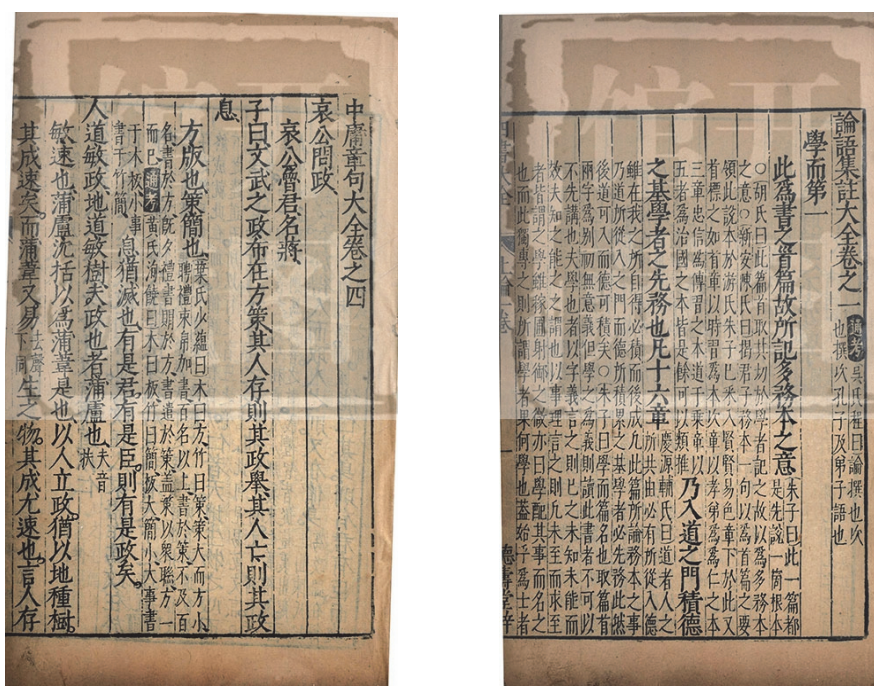 論語集註大全卷之一 通考 吳氏程曰論撰也次
也撰次孔子及弟子語也
學而第一
此爲書之首篇故所記多務本之意 朱子曰此一篇都
是先說一箇根本
○胡氏曰此篇首取其切於學者記之故以爲多務本
之意○新安陳氏曰揭君子務本一句以爲首篇之要
領此說本於游氏朱子已采入賢賢易色章下於此又
首標之如首章以時習爲本次章以孝弟爲爲仁之本
三章忠信爲傳習之本道千乘章以
五者爲治國之本皆是餘可以類推 乃入道之門積德
之基學者之先務也凡十六章 慶源輔氏曰道者人之
所共由必有所從入德
雖在我之所自得必積而後成凡此篇所論務本之事
乃道所從入之門而德所積累之基學者必先務此然
後道可入而德可積矣○朱子曰學而篇名也取篇首
兩字爲別初無意義但學之爲義則讀此書者不可以
不先講也夫學也者以字義言之則已之未知未能而
效夫知之能之之謂也以事理言之則凡未至而求至
者皆謂之學雖稼圃射御之微亦曰學配其事而名之
也而此獨專之則所謂學者果何學也蓋始乎爲士者
德壽堂梓
中庸章句大全卷之四
哀公問政
哀公魯君名蔣
子曰文武之政布在方策其人存則其政舉其人亡則其政
息
方版也策簡也 葉氏少蘊曰木曰方竹曰策策大而方小
聘禮束帛加書百名以上書於策不及百
名書於方既夕禮書賵於方書遣於策蓋策以衆聯方一
而已 通考 黃氏洵饒曰木曰板竹曰簡板大簡小大事書
于木板小事
書于竹簡 息猶滅也有是君有是臣則有是政矣
人道敏政地道敏樹夫政也者蒲盧也 夫音扶
敏速也蒲盧沈括以爲蒲葦是也以人立政猶以地種樹
其成速矣而蒲葦又易 去聲
下同 生之物其成尤速也言人存